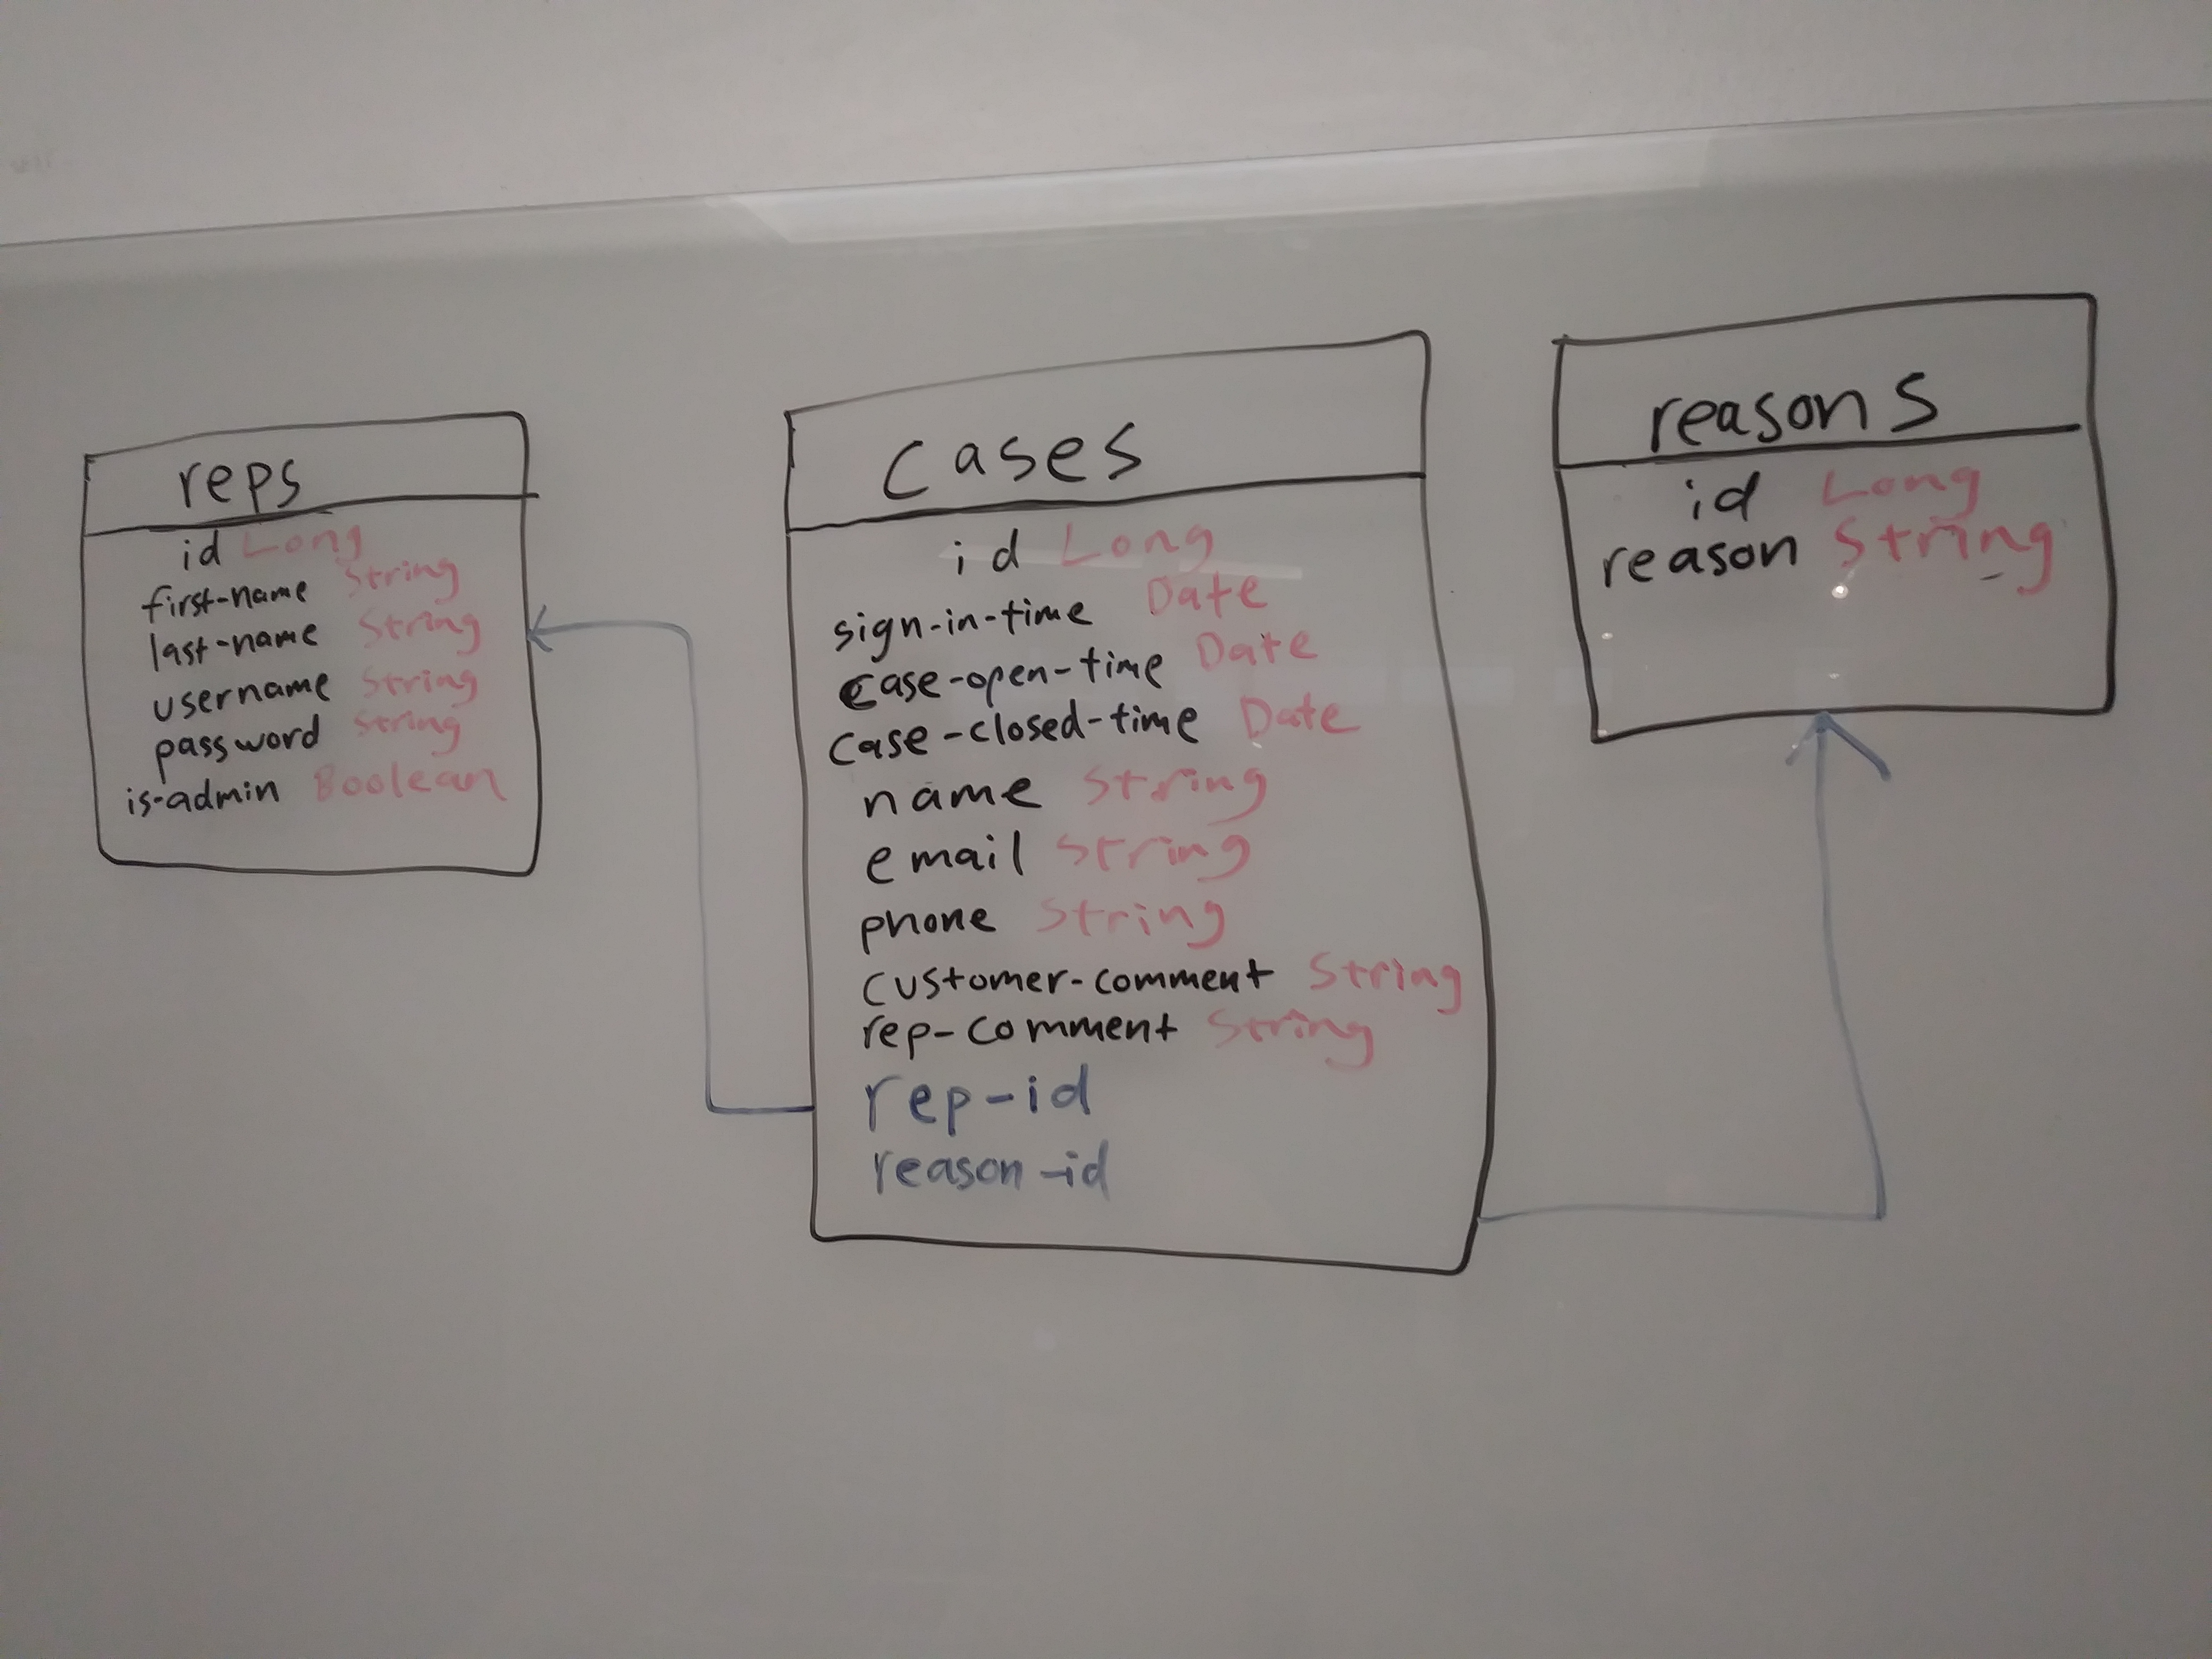 reps
id Long
first-name String
last-name String
username String
password String
is-admin Boolean
cases
id Long
sign-in-time Date
case-open-time Date
case-closed-time Date
name String
email String
phone String
customer-comment String
rep-comment String
rep-id
reason-id
reasons
id Long
reason String